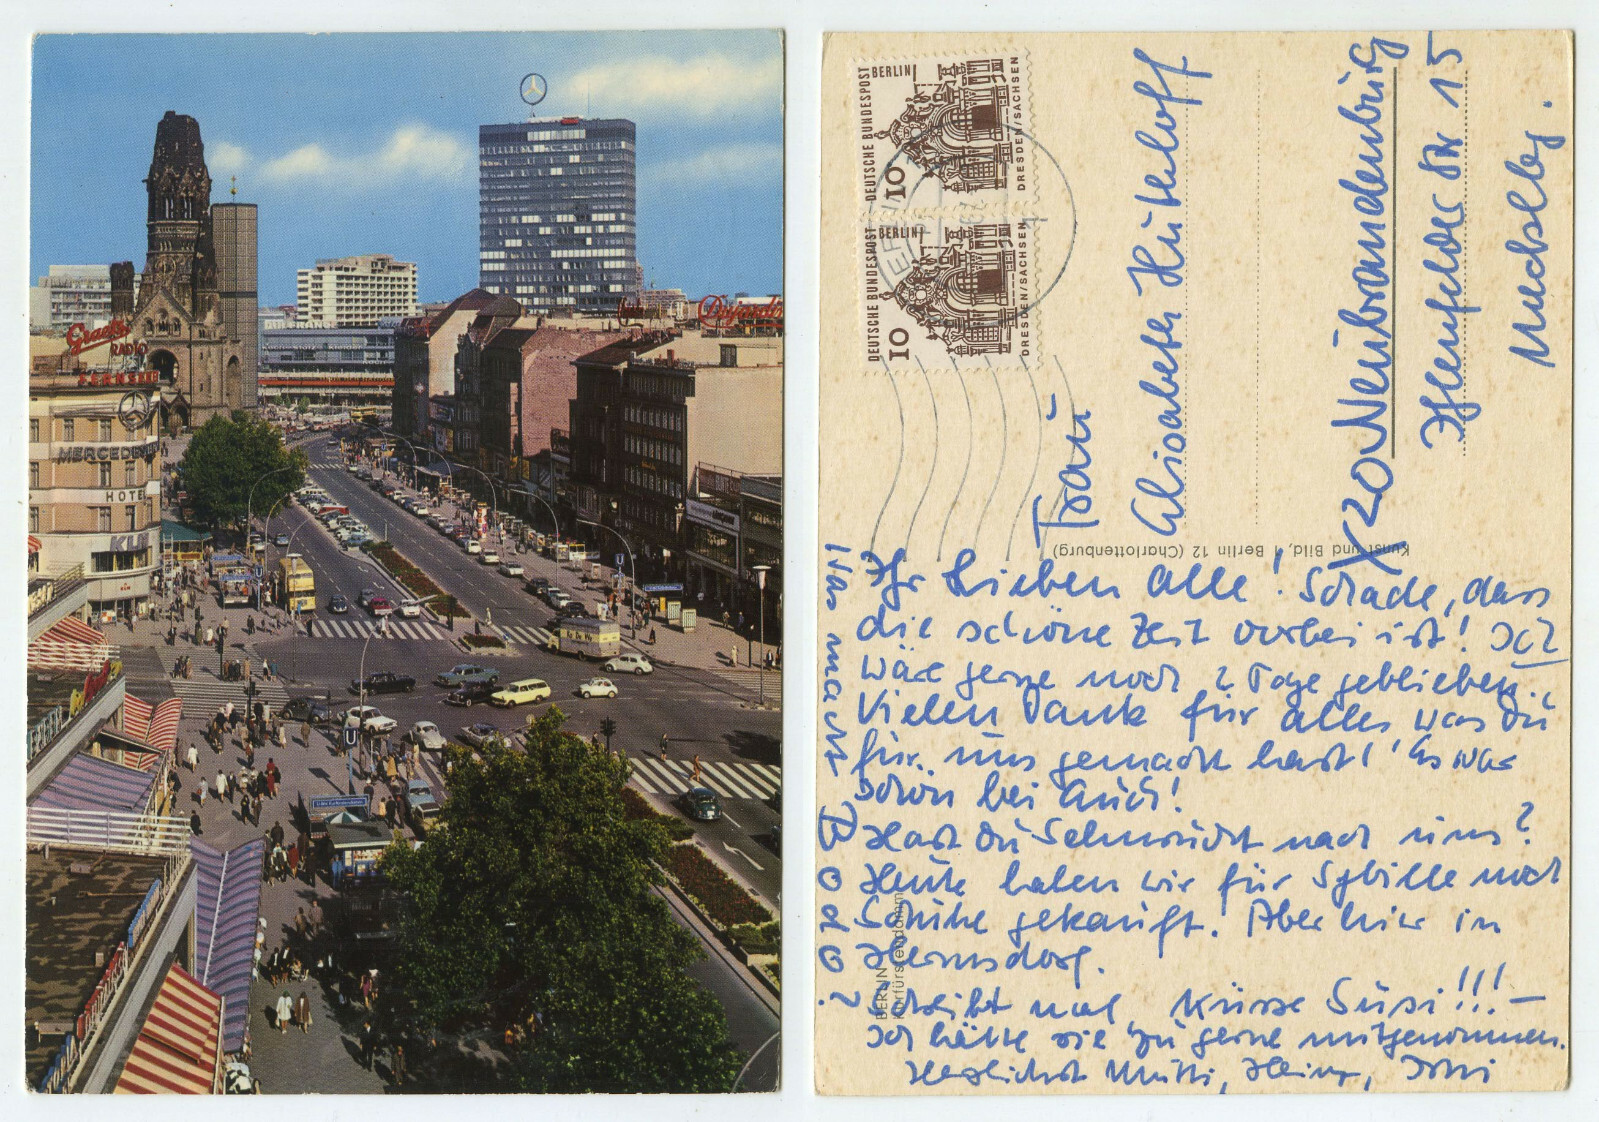 Graetz
RADIO
FERNSEH
MERCEDES
HOTEL
U
U
U
BERLIN
DEUTSCHE BUNDESPOST
10
DRESDEN/SACHSEN
BERLIN
DEUTSCHE BUNDESPOST
10
DRESDEN/SACHSEN
Frau
Elisabeth Huthloff
X20 Neubrandenburg
Ihlenfelder Str 15
Mecklbg.
Kunst und Bild, 1 Berlin 12 (Charlottenburg)
BERLIN
Kurfürstendamm
Ihr Lieben Alle! Schade, dass
die schöne Zeit vorbei ist! Ich
wäre gerne noch 2 Tage geblieben.
Vielen Dank für alles was Du
für uns gemacht hast! Es war
schön bei Euch!
Hast Du Sehnsucht nach uns?
Heute haben wir für Sybille noch
Schuhe gekauft. Aber hier in
Hermsdorf.
Schreibt mal, Küsse Susi!!! –
Ich hätte sie zu gerne mitgenommen.
Herzlichst Mutti, Heinz,
Was macht Bodo?